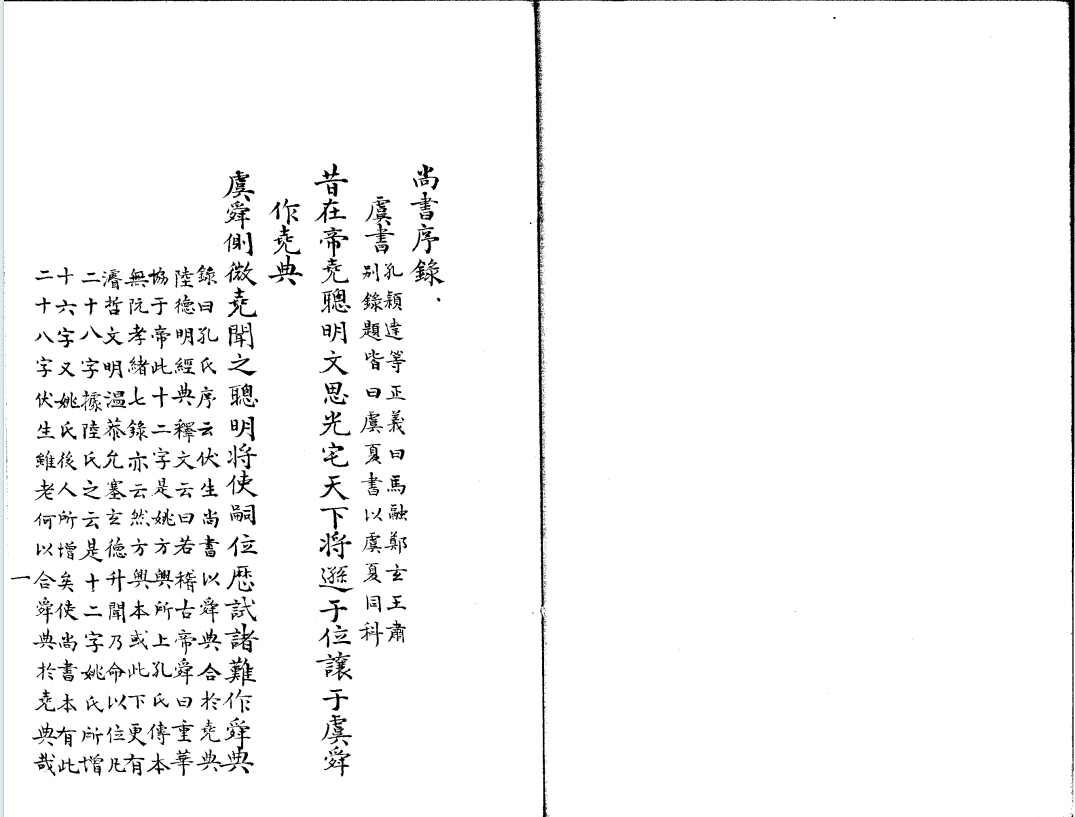 尚書序錄
虞書
孔穎達等正義曰馬融鄭玄王肅
别錄題皆曰虞夏書以虞夏同科
昔在帝堯聰明文思光宅天下将遜于位讓于虞舜
作堯典
虞舜側微堯聞之聰明将使嗣位歷試諸難作舜典
錄曰孔氏序云伏生尚書以舜典合於堯典
陸德明經典釋文云曰若稽古帝舜曰重華
協于帝此十二字是姚方輿所上孔氏傳本
無阮孝緒七錄亦云然方輿本或此下更有
濬哲文明温恭允塞玄德升聞乃命以位凡
二十八字據陸氏之云是十二字姚氏所增
十六字又姚氏後人所增矣使尚書本有此
二十八字伏生雖老何以合舜典於堯典哉
一